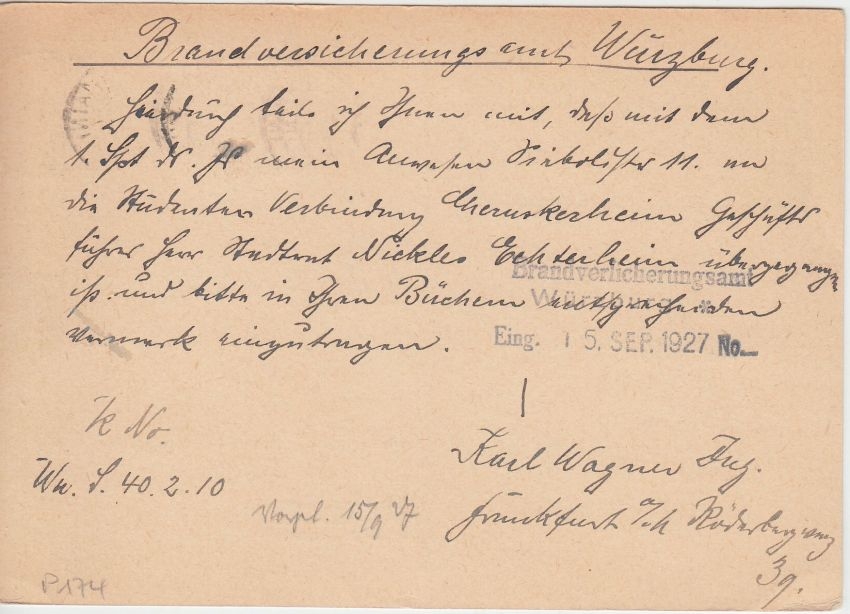 Brandversicherungsamt Würzburg.
Hierdurch teile ich Ihnen mit, daß mit dem
1. Spt ds. Js mein Anwesen Sieboldstr 11. an
die Studenten Verbindung Cheruskerheim Geschäfts
führer Herr Stadtrat Nickles Echterheim übergegangen
ist und bitte in Ihren Büchern entsprechenden
Vermerk einzutragen.
Brandversicherungsamt
Würzburg *
Eing. 15. SEP. 1927 No.
K No.
Wü. S. 40. 2. 10
Karl Wagner Ing.
Frankfurt a/M Röderbergweg
39.
15/9 27
P 174